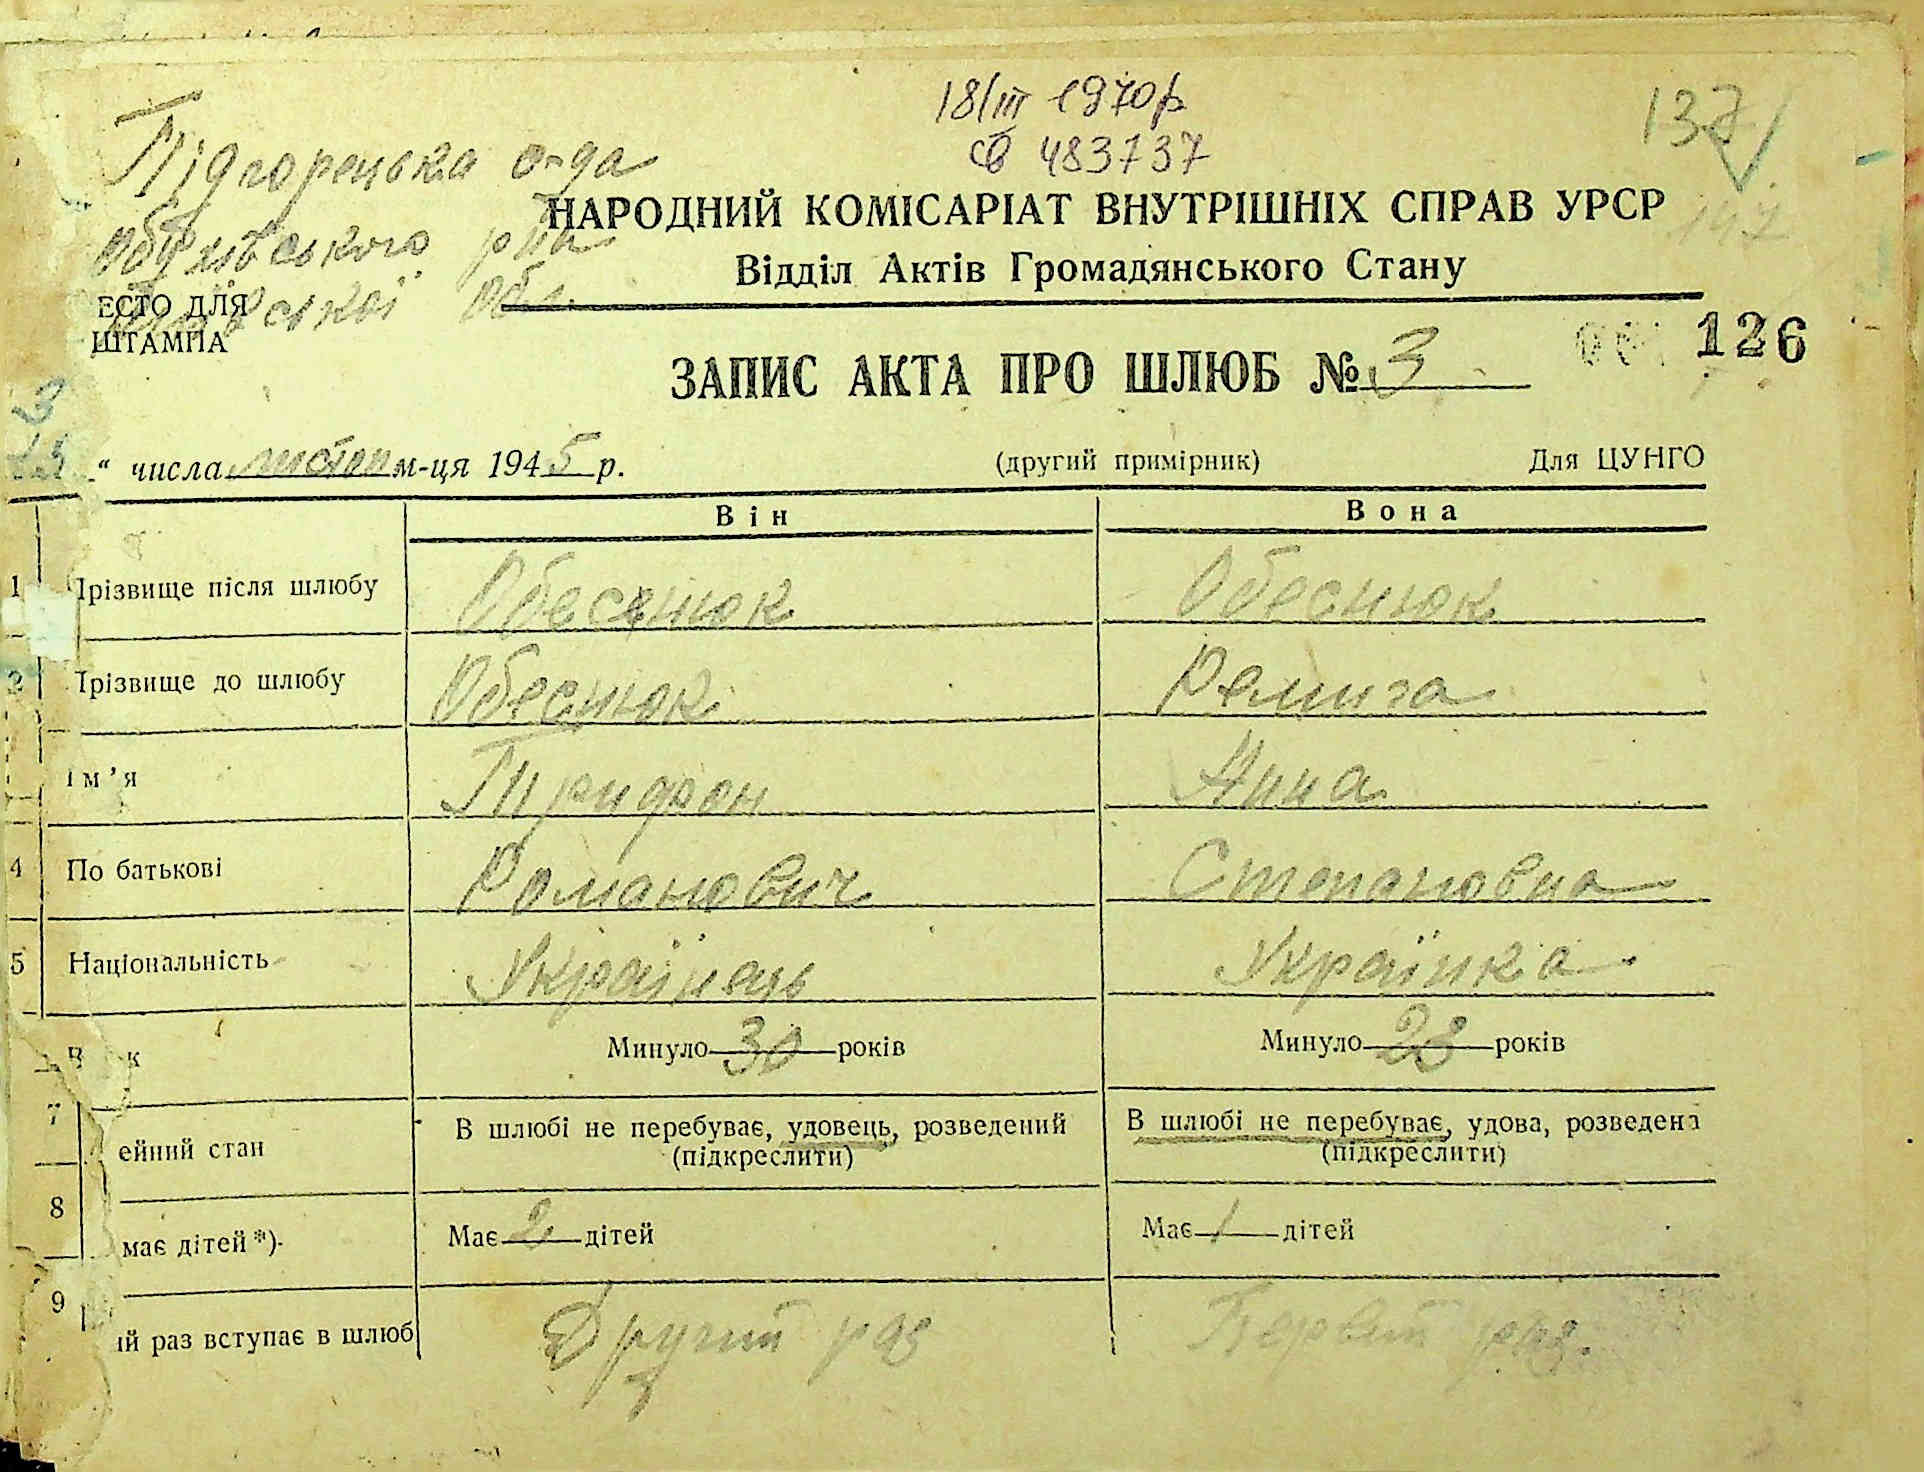 18/III 1970р
св 483737
137
147
Підгорецька с-да
р-на
обл.
НАРОДНИЙ КОМІСАРІАТ ВНУТРІШНІХ СПРАВ УРСР
Відділ Актів Громадянського Стану
ЕСТО ДЛЯ
ШТАМПА
126
ЗАПИС АКТА ПРО ШЛЮБ № 3
“ числа листоп м-ця 1945 р.
(другий примірник) Для ЦУНГО
Він Вона
1 Прізвище після шлюбу Обеснюк Обеснюк
2 Прізвище до шлюбу Обеснюк Ремига
Ім’я Трифон Анна
4 По батькові Романович Степановна
5 Національність Українець Українка
Минуло 30 років Минуло 28 років
7 ейний стан В шлюбі не перебуває, удовець, розведений В шлюбі не перебуває, удова, розведена
(підкреслити) (підкреслити)
8 має дітей *) Має 2 дітей Має 1 дітей
9 ий раз вступає в шлюб Другий раз Первий раз.